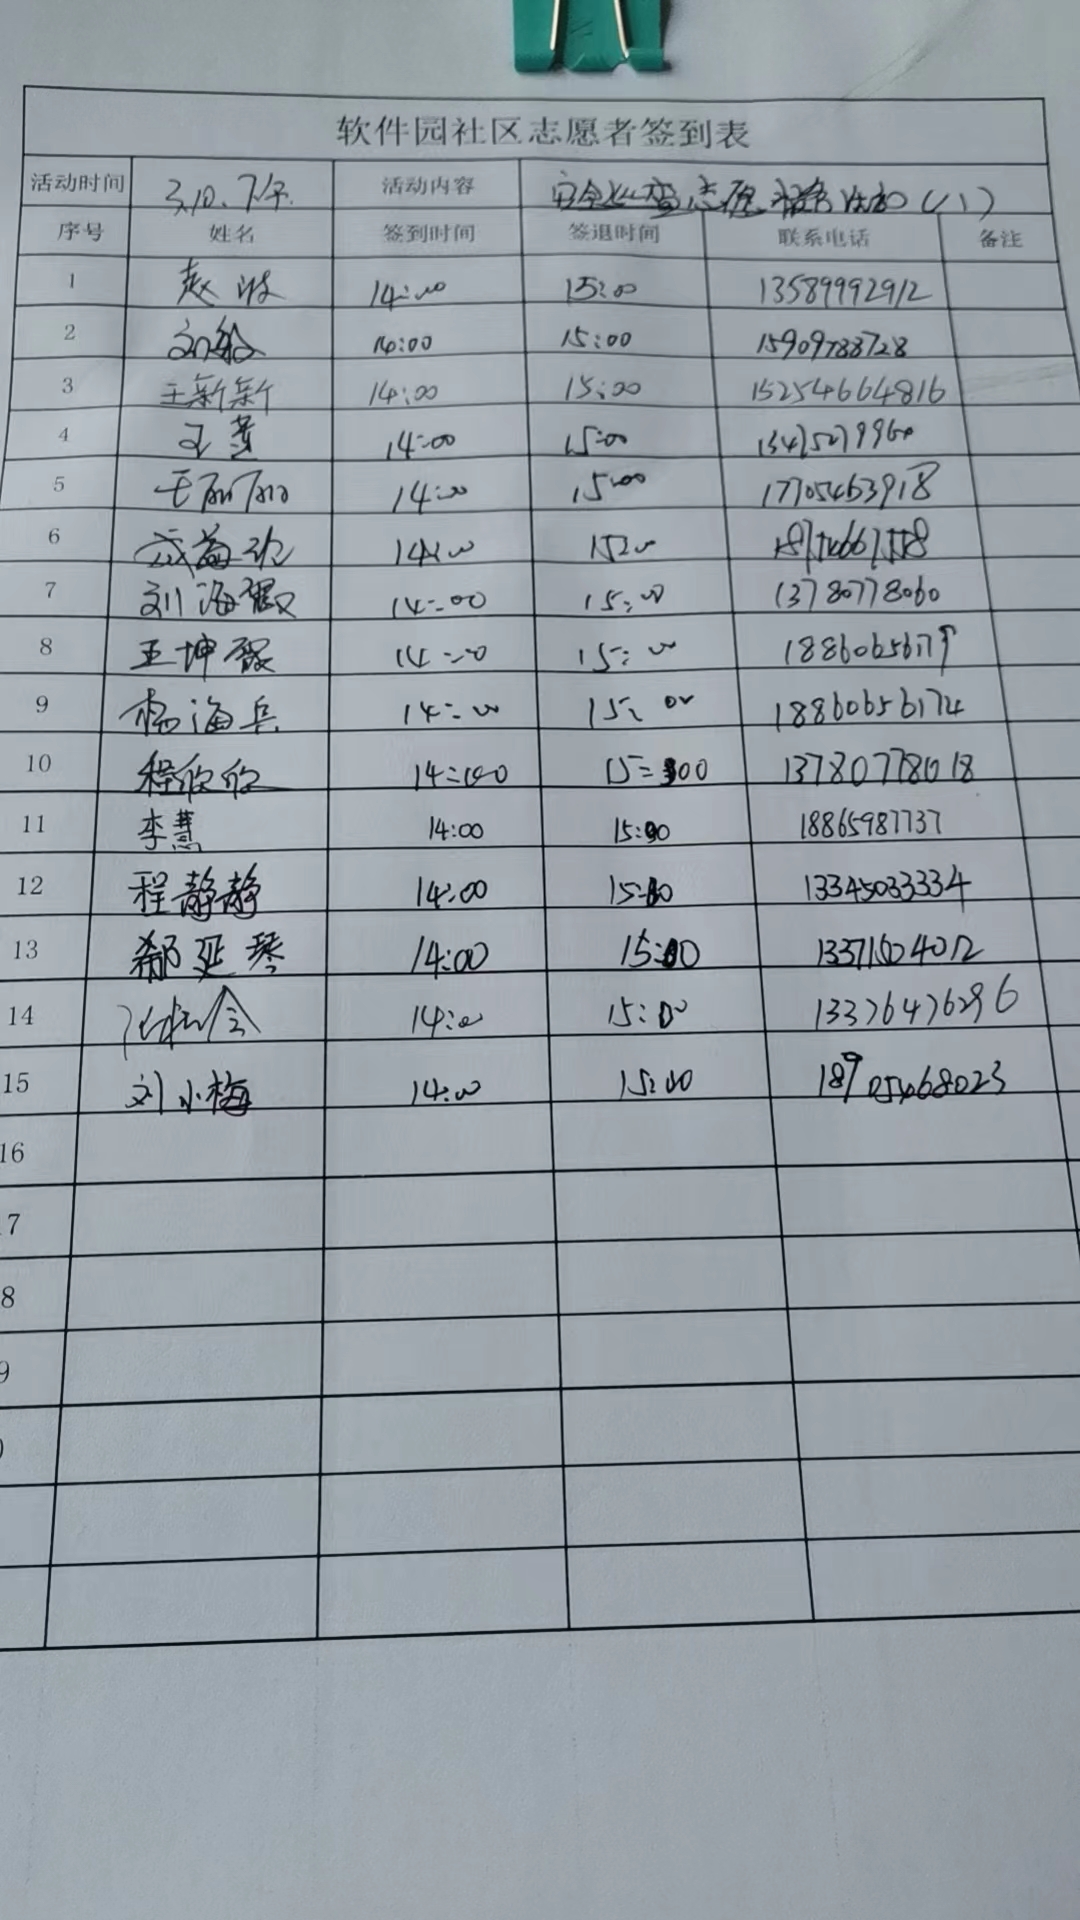 软件园社区志愿者签到表
活动时间 3.10.下午 活动内容 安全 志愿服务活动(八)
序号 姓名 签到时间 签退时间 联系电话 备注
1 赵波 14:00 15:00 13589992912
2 刘敏 14:00 15:00 15909788728
3 王新新 14:00 15:00 15254664816
4 王 14:00 15:00
5 王丽丽 14:00 15:00 17705463918
6 14:00 15:00
7 刘海霞 14:00 15:00 13780778060
8 王坤 14:00 15:00
9 杨海兵 14:00 15:00 18860656174
10 程欣欣 14:00 15:00 13780778018
11 李慧 14:00 15:00 18865987737
12 程静静 14:00 15:00 13345033334
13 郗延琴 14:00 15:00
14 14:00 15:00 13376476296
15 刘小梅 14:00 15:00 18905468023
16
7
8
9